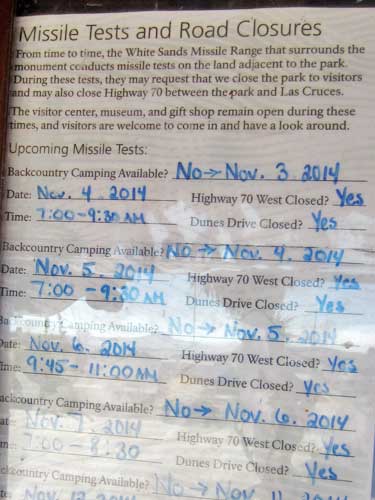 Missile Tests and Road Closures
From time to time, the White Sands Missile Range that surrounds the
monument conducts missile tests on the land adjacent to the park.
During these tests, they may request that we close the park to visitors
and may also close Highway 70 between the park and Las Cruces.
The visitor center, museum, and gift shop remain open during these
times, and visitors are welcome to come in and have a look around.
Upcoming Missile Tests:
Backcountry Camping Available? No → Nov. 3 2014
Date: Nov. 4. 2014 Highway 70 West Closed? Yes
Time: 7:00-9:30 AM Dunes Drive Closed? Yes
Backcountry Camping Available? No → Nov. 4. 2014
Date: Nov. 5. 2014 Highway 70 West Closed? Yes
Time: 7:00 - 9:30 AM Dunes Drive Closed? Yes
Backcountry Camping Available? No → Nov. 5. 2014
Date: Nov. 6. 2014 Highway 70 West Closed? Yes
Time: 9:45 - 11:00 AM Dunes Drive Closed? Yes
Backcountry Camping Available? No → Nov. 6. 2014
ate: Nov. 7. 2014 Highway 70 West Closed? Yes
me: 7:00 - 8:30 Dunes Drive Closed? Yes
ckcountry Camping Available? No → Nov. 11 2014
Nov. 12 2014